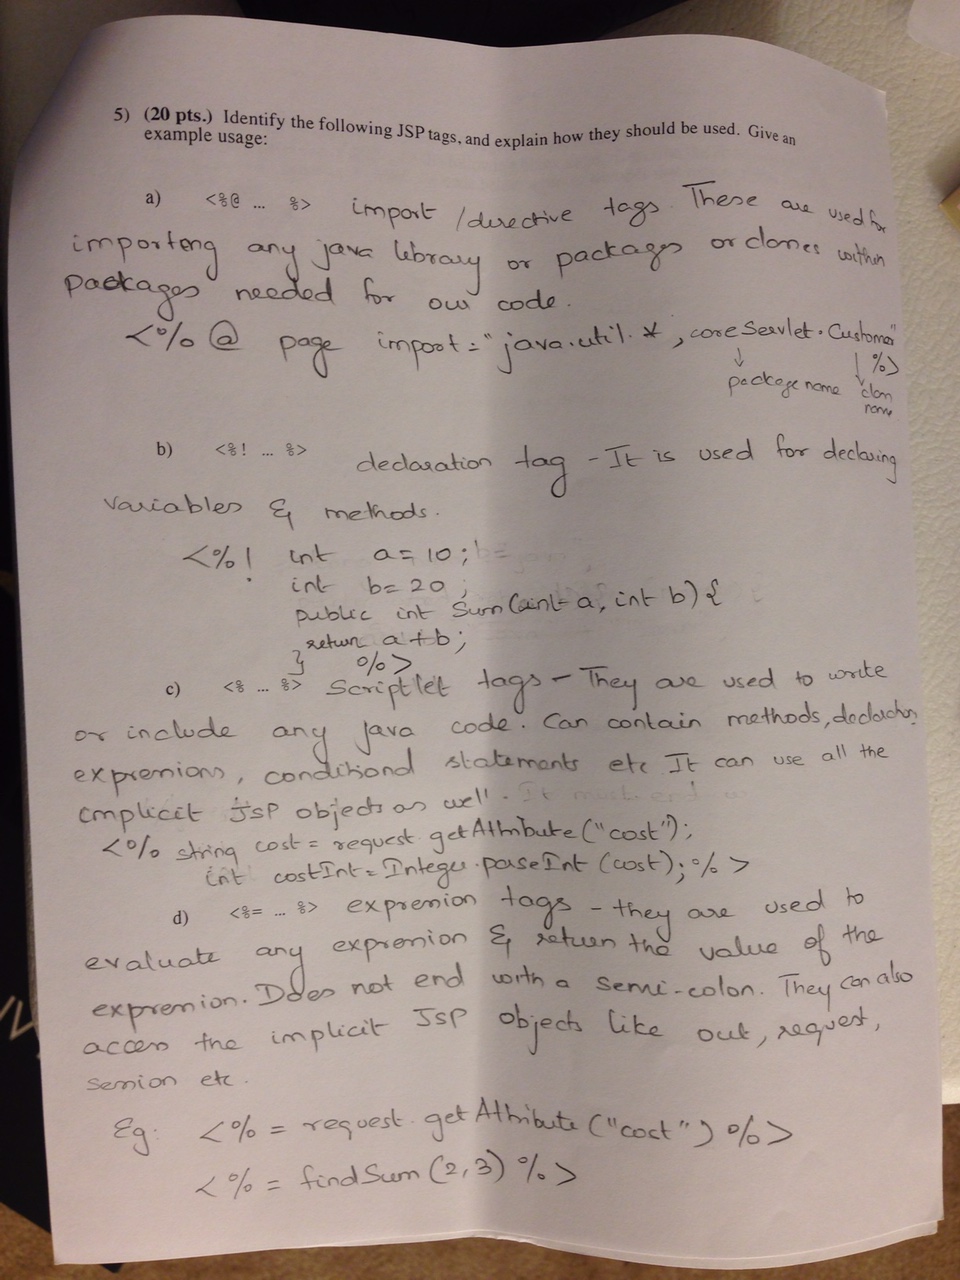 5) (20 pts.) Identify the following JSP tags, and explain how they should be used. Give an
example usage:
a) <%@ ... %> import /directive tags. These are used for
importeng any java library or packages or classes within
packages needed for our code.
<% @ page import = "java.util. *, coreServlet. Customer"
%>
package name class
name
b) <%! ... %> declaration tag - It is used for declaring
variables & methods.
<%! int a = 10;
int b = 20;
public int Sum (int a, int b) {
return a+b;
} %>
c) <% ... %> Scriptlet tags - They are used to write
or include any java code. Can contain methods, declaration,
expressions, conditional statements etc It can use all the
implicit JSP objects as well.
<% string cost = request. getAttribute ("cost");
int costInt = Integer.parseInt (cost); % >
d) <%= ... %> expression tags - they are used to
evaluate any expression & return the value of the
expression. Does not end with a semi-colon. They can also
access the implicit JSP objects like out, request,
session etc.
Eg: <% = request. getAttribute ("cost") %>
<% = findSum (2,3) %>